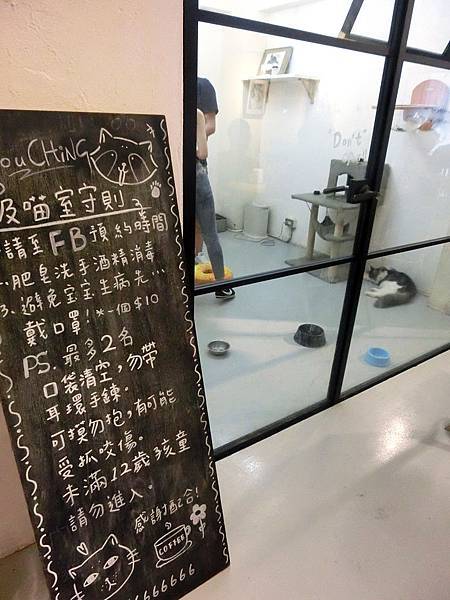 CHING
吸喵室守則
請至FB預約時間
肥皂洗手酒精消毒
3.避免宝宝生病先...
戴口罩!*一個$10
PS.最多2名
口袋清空,勿帶
耳環手鍊。
可摸勿抱,有可能
受抓咬傷。
未滿12歲孩童
請勿進入。
感謝配合!
COFFEE
666666
"Don't"